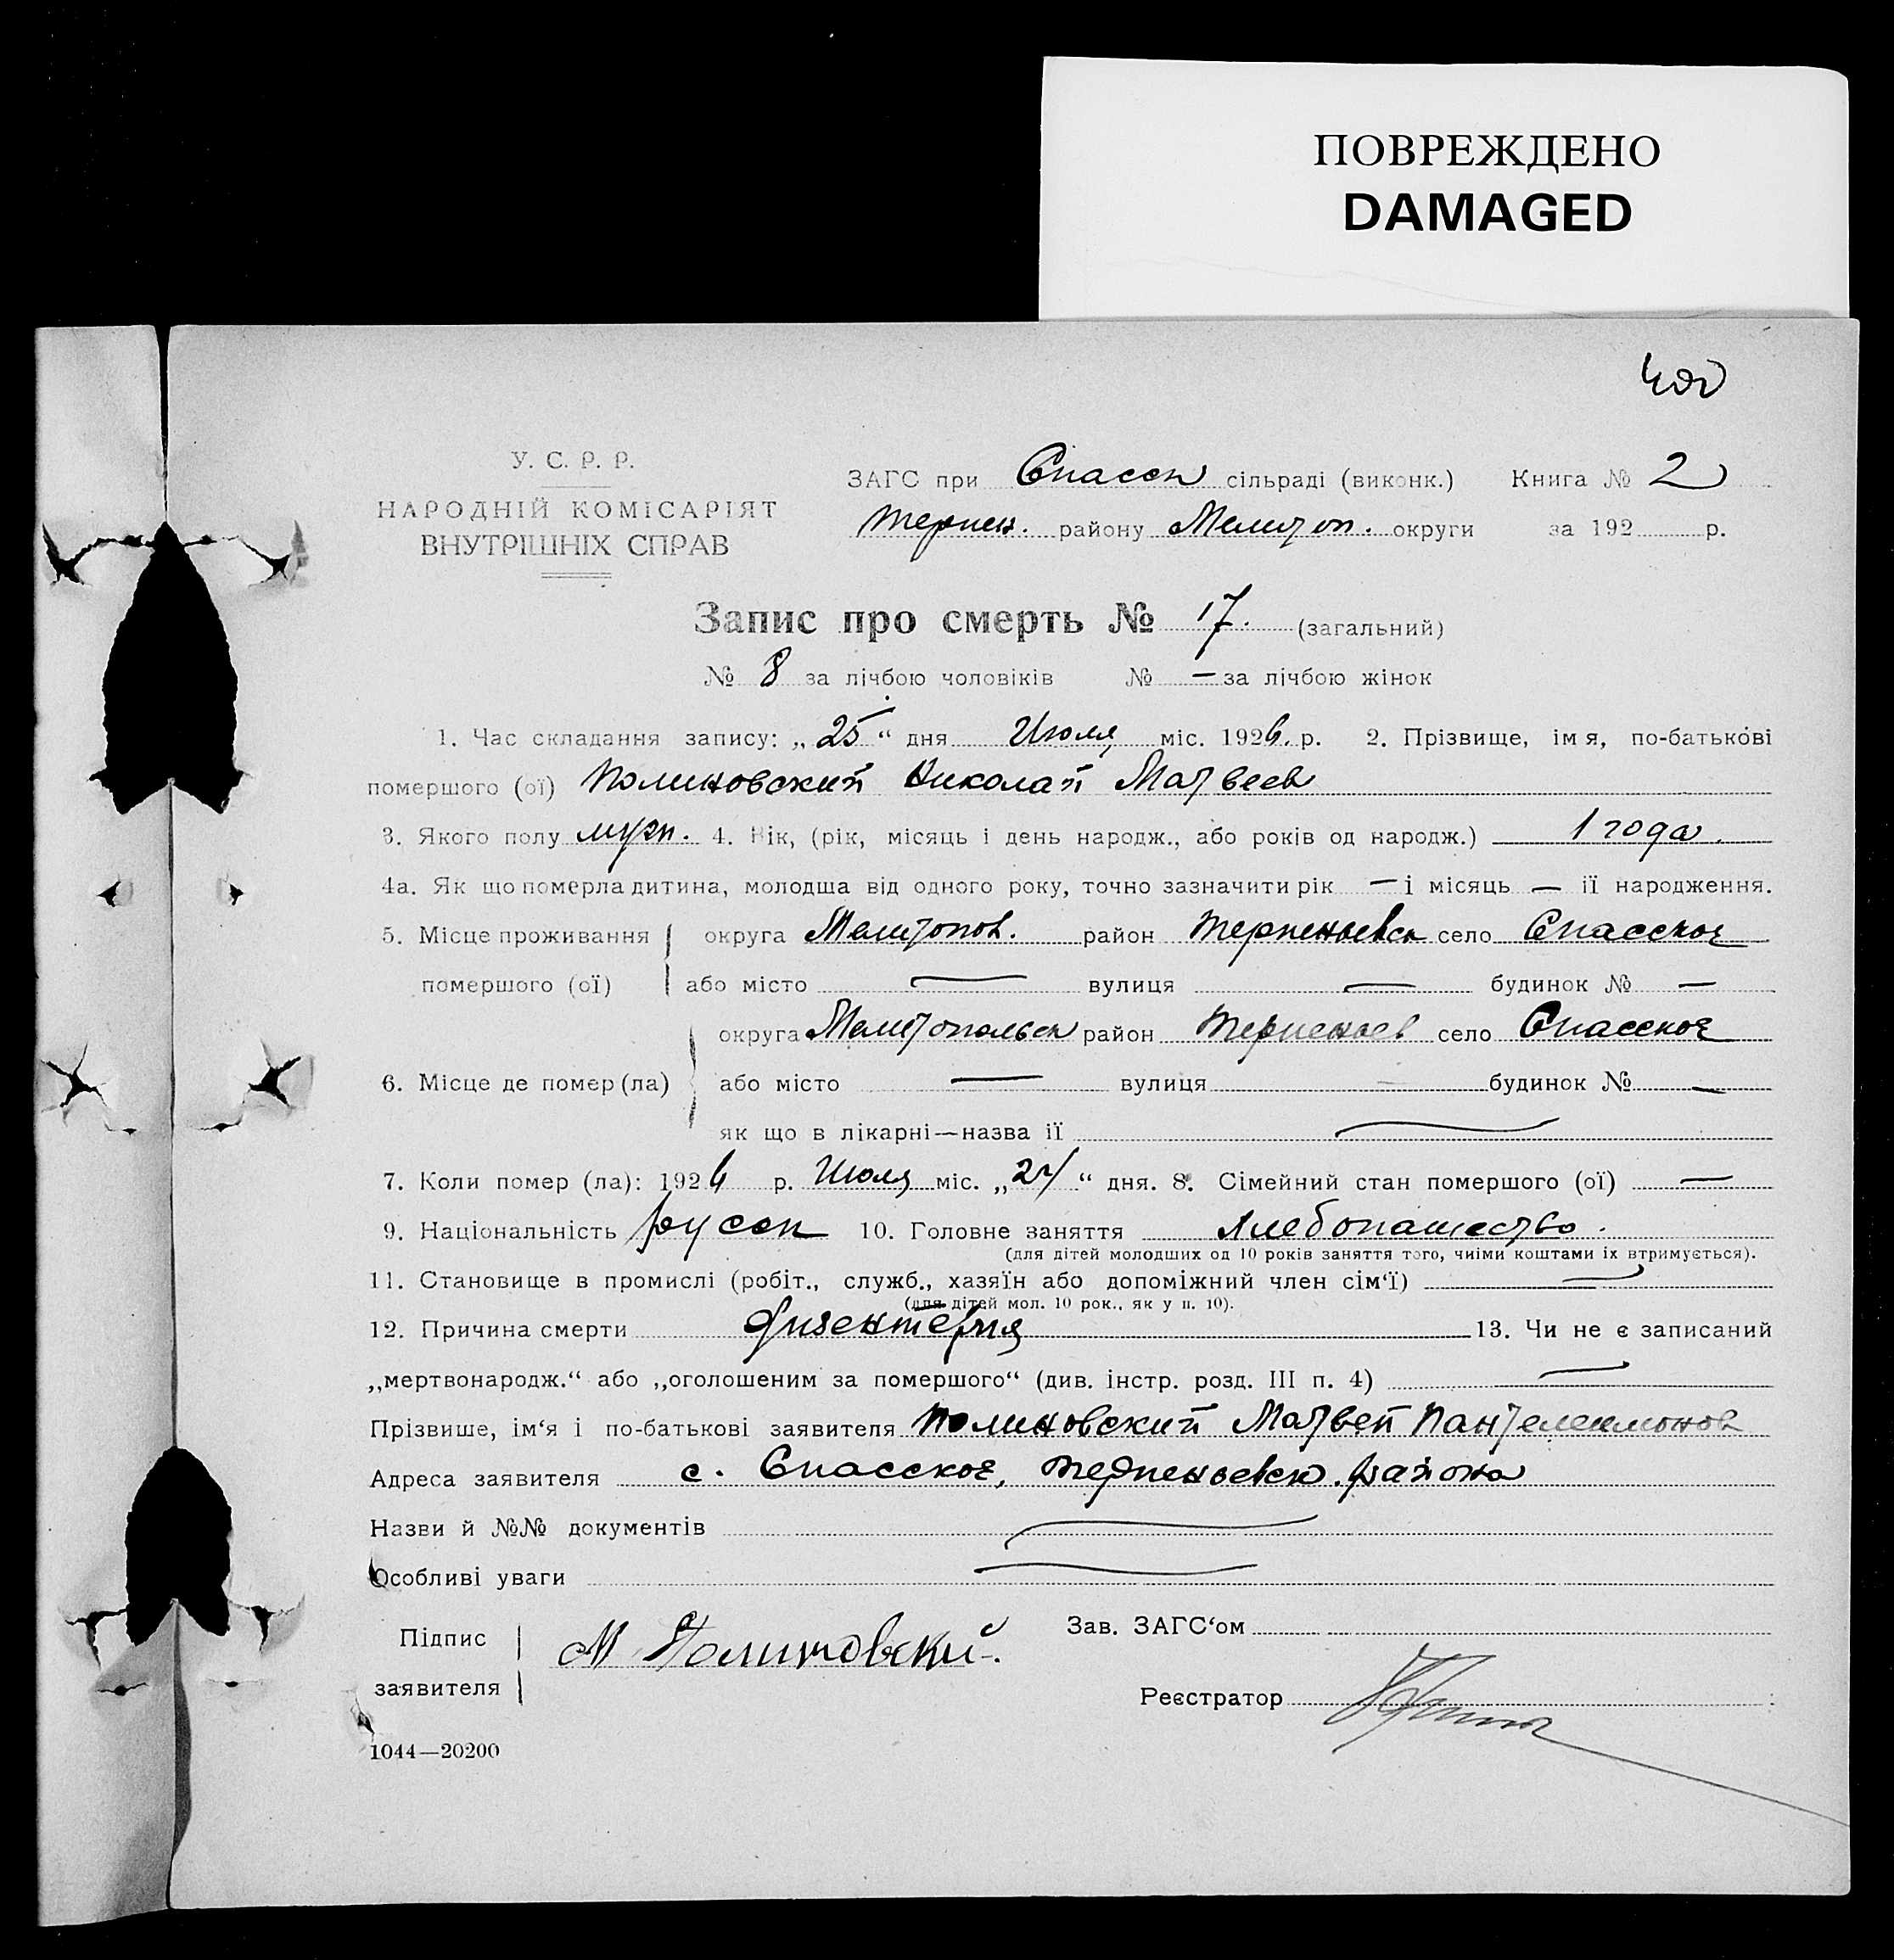 ПОВРЕЖДЕНО
DAMAGED
400
У. С. Р. Р.
НАРОДНІЙ КОМІСАРІЯТ
ВНУТРІШНІХ СПРАВ
ЗАГС при Спасск сільраді (виконк.) Книга № 2
Терпен. району Мелитоп. округи за 192 р.
Запис про смерть № 17. (загальний)
№ 8 за лічбою чоловіків № — за лічбою жінок
1. Час складання запису: „25“ дня Июля міс. 1926. р. 2. Прізвище, імя, по-батькові
помершого (ої) Полиновский Николай Матвеев
3. Якого полу муж. 4. Вік, (рік, місяць і день народж., або років од народж.) 1 года.
4а. Як що померла дитина, молодша від одного року, точно зазначити рік — і місяць — її народження.
5. Місце проживання округа Мелитопов. район Терпеньевск село Спасское
помершого (ої) або місто — вулиця — будинок № —
округа Мелитопольск район Терпеньев село Спасское
6. Місце де помер (ла) або місто — вулиця — будинок № —
як що в лікарні—назва її —
7. Коли помер (ла): 1926 р. Июля міс. „24“ дня. 8. Сімейний стан помершого (ої) —
9. Національність русск 10. Головне заняття хлебопашество.
(для дітей молодших од 10 років заняття того, чиїми коштами їх втримується).
11. Становище в промислі (робіт., служб., хазяїн або допоміжний член сім‘ї) —
(для дітей мол. 10 рок., як у п. 10).
12. Причина смерти дизентерия 13. Чи не є записаний
„мертвонародж.“ або „оголошеним за помершого“ (див. інстр. розд. III п. 4) —
Прізвише, ім‘я і по-батькові заявителя Полиновский Матвей Пантелеимонов
Адреса заявителя с. Спасское, Терпеньевск. района
Назви й №№ документів —
Особливі уваги —
Підпис М Полиновский. Зав. ЗАГС‘ом
заявителя Реєстратор
1044—20200